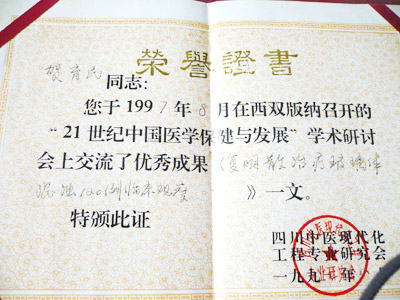 榮譽證書
贺育民 同志:
您于1997年8月在西双版纳召开的
“21世纪中国医学保健与发展”学术研讨
会上交流了优秀成果《复明散治疗玻璃体
混浊120例临床观察》一文。
特颁此证
四川中医现代化
工程专业研究会
一九九 年